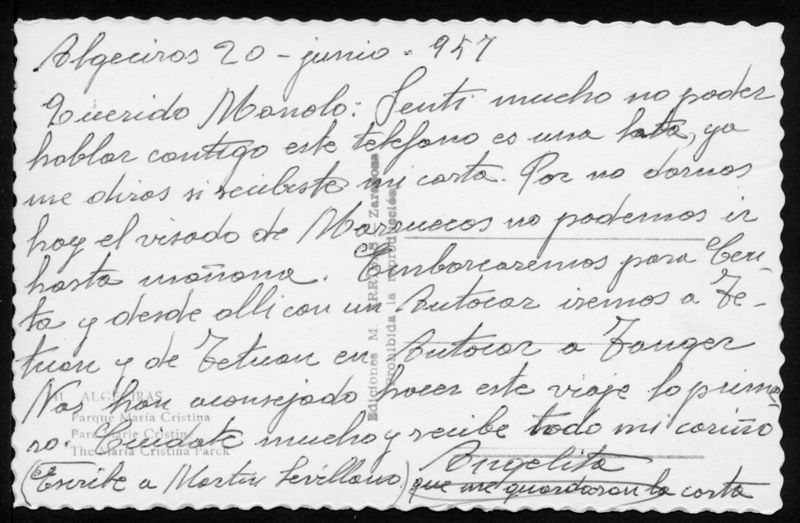 Algeciras 20 - junio - 957
Querido Manolo: Sentí mucho no poder
hablar contigo este teléfono es una lata, ya
me diras si recibiste mi carta. Por no darnos
hoy el visado de Marruecos no podemos ir
hasta mañana. Embarcaremos para Ceu-
ta y desde alli con un Autocar iremos a Te-
tuan y de Tetuan en Autocar a Tanger
Nos han aconsejado hacer este viaje lo prime-
ro. Cuidate mucho y recibe todo mi cariño
Angelita
(Escribe a Martin Sevillano) que me guardaran la carta
ALGECIRAS
Parque María Cristina
Parc Marie Cristine
The María Cristina Parck
Ediciones M. ARRIBAS Zaragoza
Prohibida la reproducción